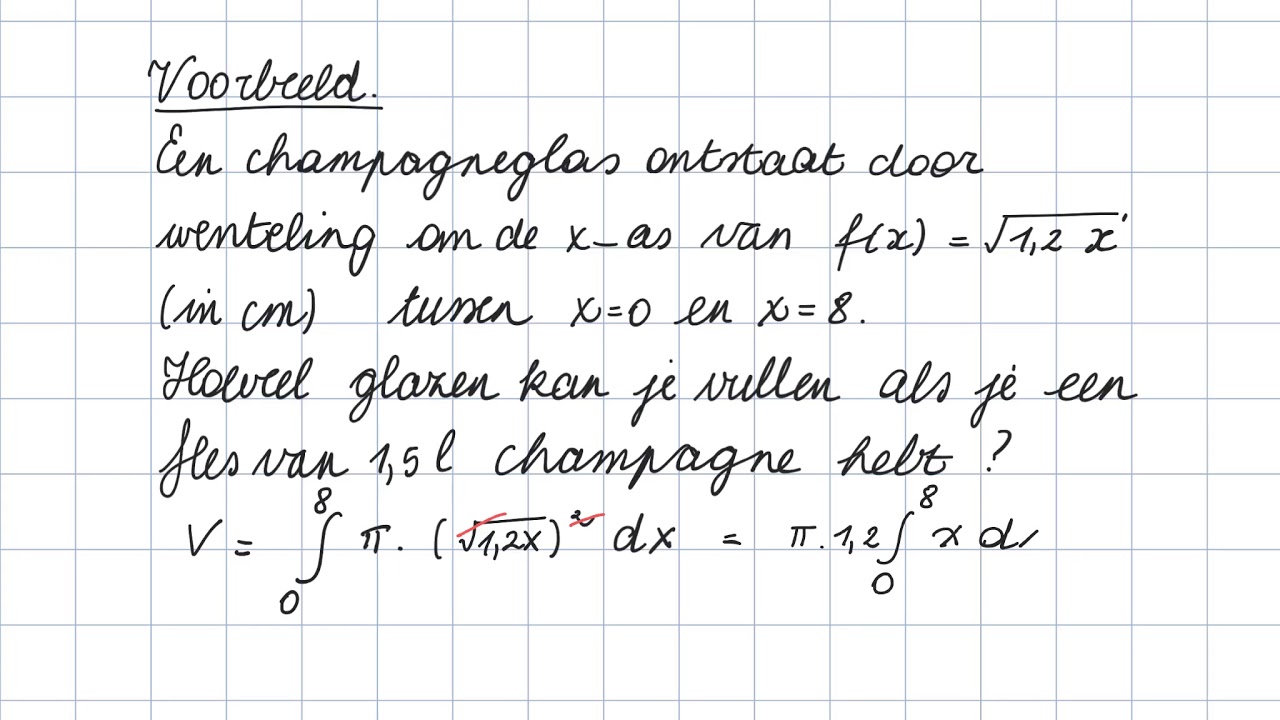 Voorbeeld.
Een champagneglas ontstaat door
wenteling om de x-as van f(x) = √1,2 x
(in cm) tussen x=0 en x=8.
Hoeveel glazen kan je vullen als je een
fles van 1,5 l champagne hebt ?
V = ∫₀⁸ π. (√1,2x)² dx = π.1,2 ∫₀⁸ x d